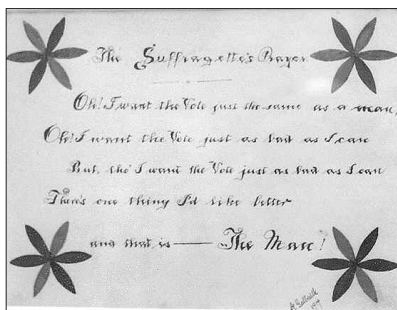 The Suffragette's Prayer
Oh! I want the Vote just the same as a man,
Oh! I want the Vote just as bad as I can
But, tho' I want the Vote just as bad as I can
There's one thing I'd like better
and that is — The Man!